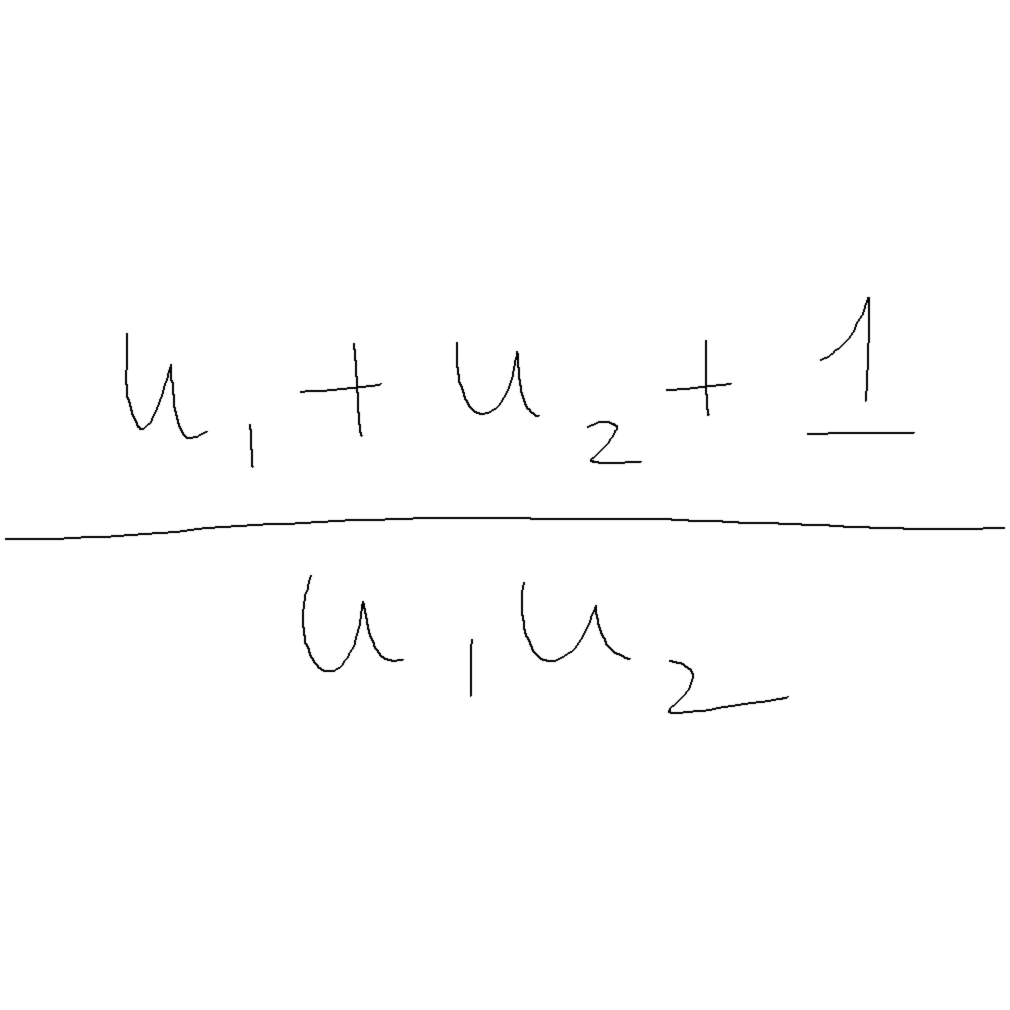 u₁ + u₂ + 1
u₁u₂